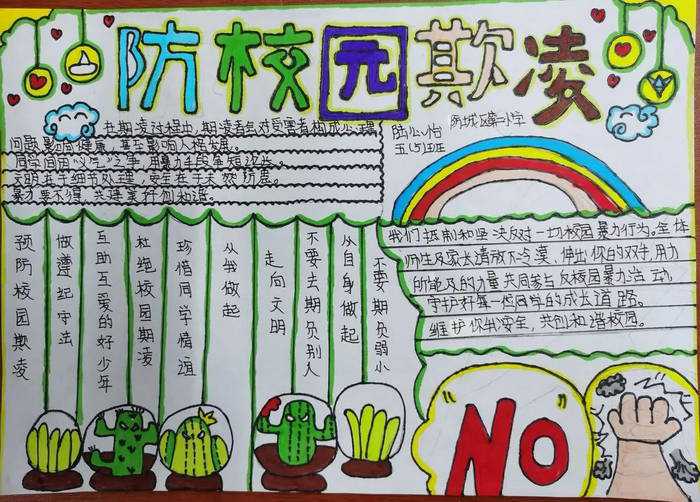 防校园欺凌
五(5)班
在期凌过程中，期凌者会对受害者构成心理
问题，影响健康，甚至影响人格发展。
同学间由"义气"之争，用暴力手段争短
文明在于细节处理，安全在于未然防患。
暴力要不得，共建美好创和谐。
预防校园欺凌
做遵纪守法
互助互爱的好少年
杜绝校园期凌
珍惜同学情谊
从我做起
走向文明
不要去期负别人
从自身做起
不要期负弱小
我们抵制和坚决反对一切校园暴力行为。全体
师生及家长请放下冷漠，伸出你的双手，用力
所能及的力量共同参与反校园暴力活动，
守护好每一个同学的成长道路。
维护你我安全，共创和谐校园。
"NO"